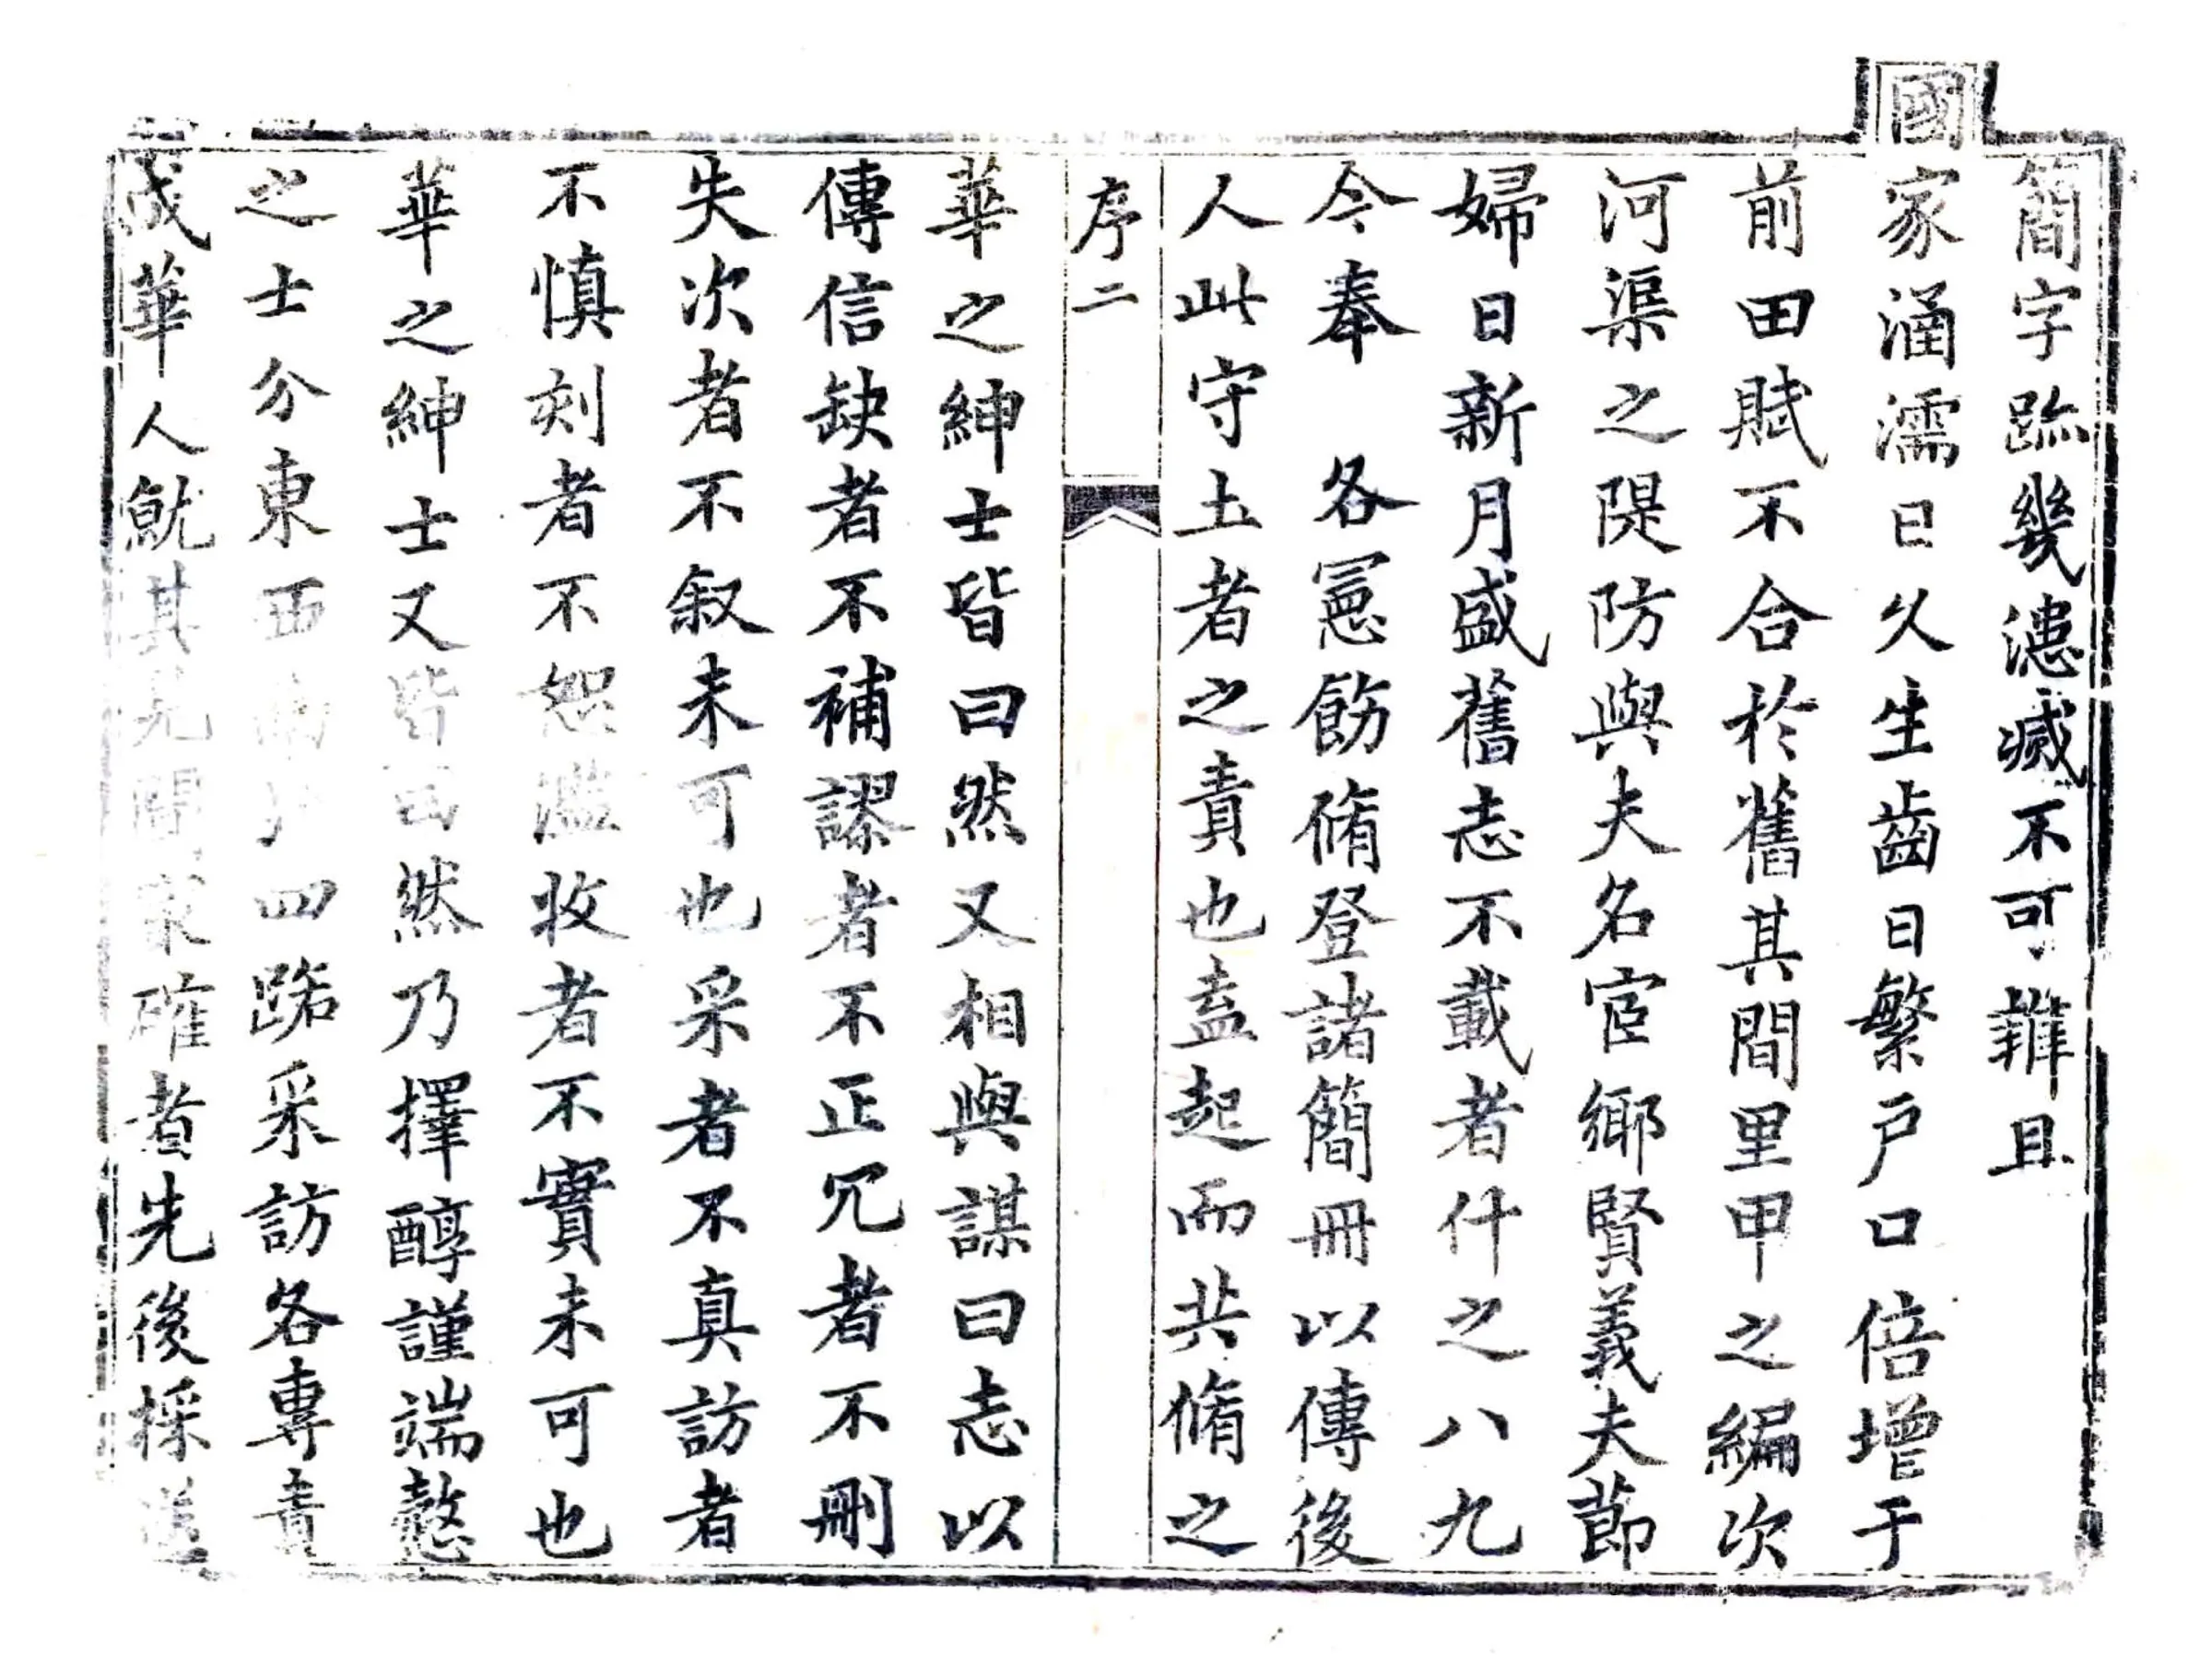 簡字跡幾漶滅不可辨且
國家涵濡日久生齒日繁戶口倍增于
前田賦不合於舊其間里甲之編次
河渠之隄防與夫名宦鄉賢義夫節
婦日新月盛舊志不載者什之八九
今奉 各憲飭脩登諸簡冊以傳後
人此守土者之責也盍起而共脩之
序二
華之紳士皆曰然又相與謀曰志以
傳信缺者不補謬者不正冗者不刪
失次者不叙未可也采者不真訪者
不慎刻者不恕濫收者不實未可也
華之紳士又皆曰然乃擇醇謹端愨
之士分東西南北四路采訪各專責
成華人就其見聞最確者先後採送